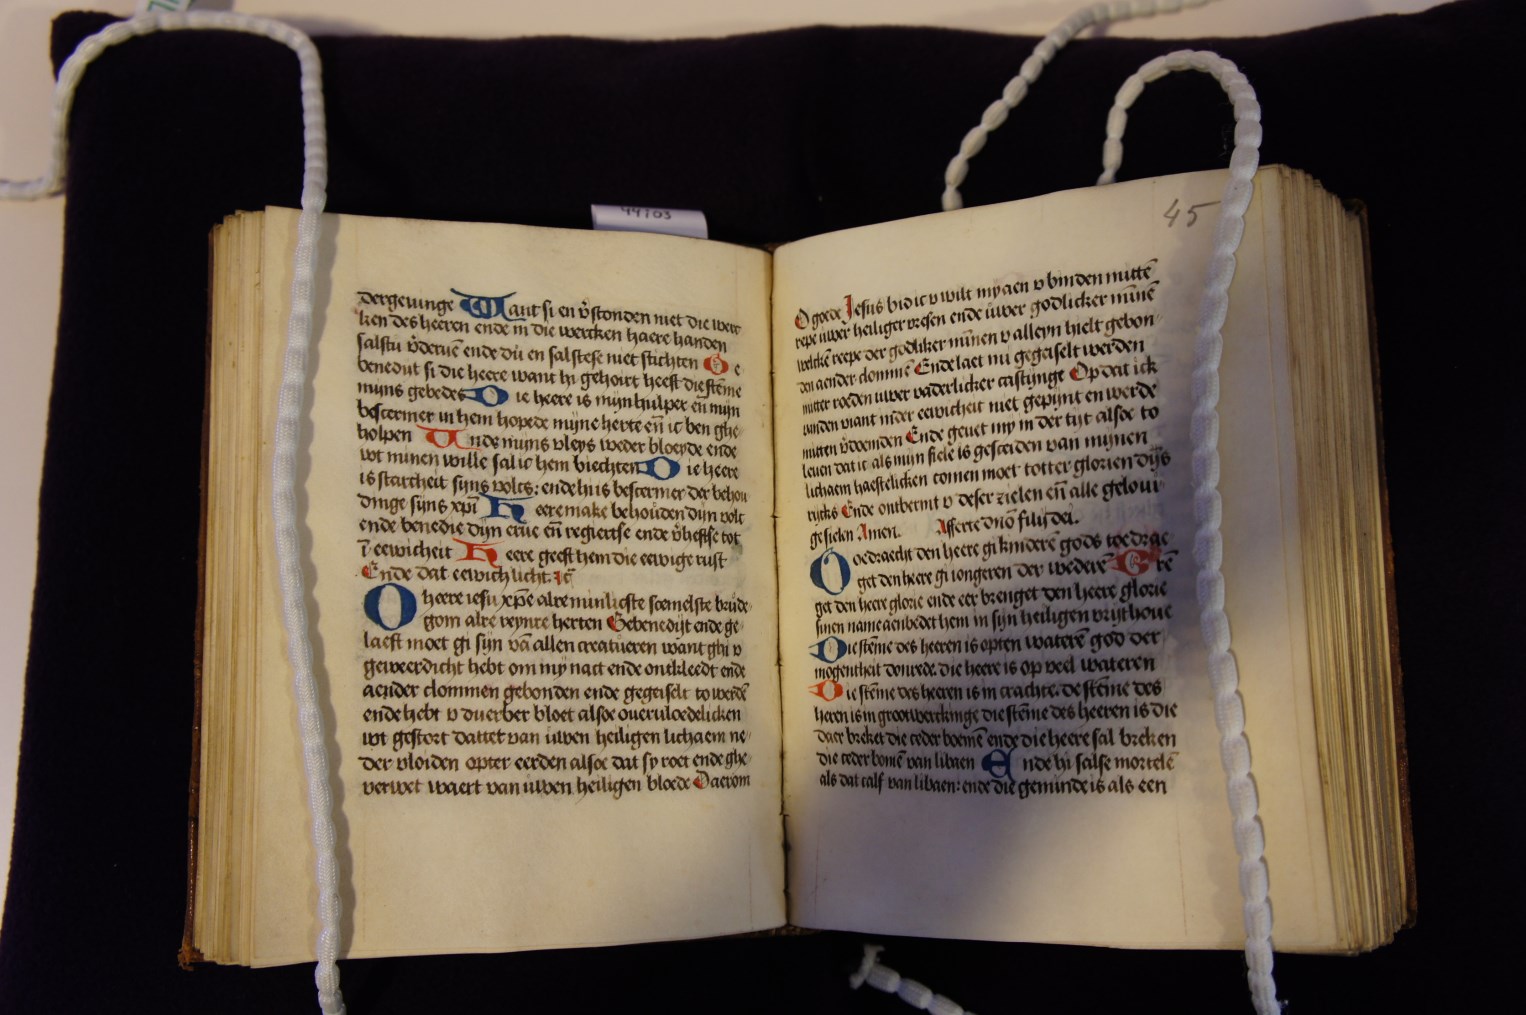 44i03
dergeuinge Want si en v̄stonden niet die werc
ken des heeren ende in die wercken haere handen
salstu v̄deruē ende du en salstese niet stichten Ge
benedijt si die heere want hi gehoirt heeft die stēme
mijns gebedes Die heere is mijn hulper eñ mijn
bescermer in hem hopede mijne herte eñ ic ben ghe
holpen Ende mijns vleys weder bloeyde ende
wt minen wille sal ic hem biechten Die heere
is starcheit sijns volcs: ende hi is bescermer der behou
dinge sijns xpī Heere make behouden dijn volc
ende benedie dijn erue eñ regiertse ende v̄heftse tot
ī eewicheit Heere geeft hem die eewige rust
Ende dat eewich licht.
O heere iesu xpē alre minlicste scemelste brude
gom alre reynre herten Gebenedijt ende ge
laeft moet gi sijn vā allen creatueren want ghi v
geweerdicht hebt om my nact ende ontkleedt ende
aender clommen gebonden ende gegeiselt to werdē
ende hebt v duerber bloet alsoe oueruloedelicken
wt gestort dattet van uwen heiligen lichaem ne
der vloiden opter eerden alsoe dat sy roet ende ghe
verwet waert van uwen heiligen bloede Daerom
45
O goede Jesus bid ic v wilt my aen v binden mittē
repe uwer heiliger vresen ende uwer godlicker mīnē
welckē reepe der godliker mīnen v alleyn hielt gebon
den aender clommē Ende laet mi gegeiselt werden
mitter roeden uwer vaderlicker castijnge Op dat ick
vanden viant inder eewicheit niet gepijnt en werde
mitten v̄doemden Ende geuet my in der tijt alsoe to
leuen dat ic als mijn siele is gesceiden van mijnen
lichaem haestelicken comen moet totter glorien dijs
rijcks Ende ontbermt v deser zielen eñ alle gelouí
ge sielen Amen. Afferte dn̄o filij dei.
Toedraecht den heere gi kinderē gods toe drae
get den heere gi iongeren der wederē Brē
get den heere glorie ende eer brenget den heere glorie
sinen name aenbedet hem in sijn heiligen vrijthoue
Die stēme des heeren is opten waterē god der
mogentheit donrede. die heere is op veel wateren
Die stēme des heeren is in crachte. de stēme des
heren is in groot werckinge die stēme des heeren is die
daer breket die ceder boemē ende die heere sal breken
die ceder bomē van libaen Ende hi salse mortelē
als dat calf van libaen: ende die geminde is als een